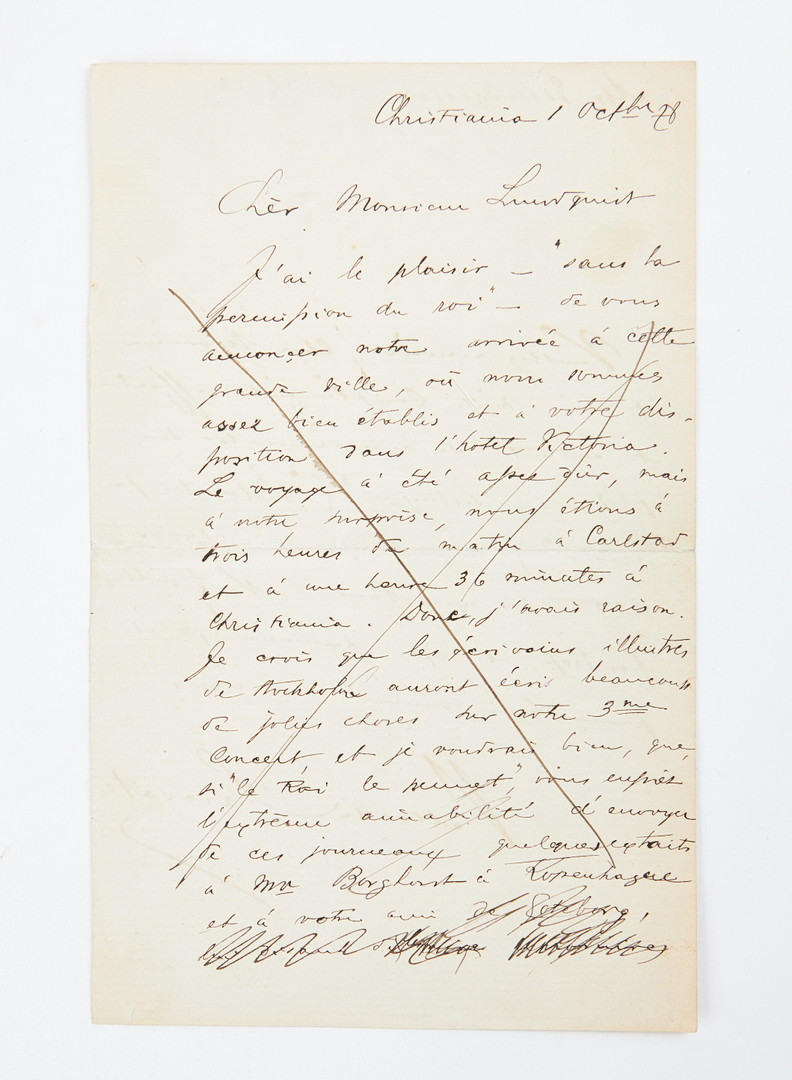 Christiania 1 Octbre 78
Chèr Monsieur Lundquist
J'ai le plaisir — "sans la
permission du roi" — de vous
annonçer notre arrivée à cette
grande ville, où nous sommes
assez bien établis et à votre dis-
position dans l'hotel Victoria.
Le voyage a été assez dûr, mais
à notre surprise, nous étions à
trois heures du matin à Carlstad
et à une heure 36 minutes à
Christiania. Donc, j'avais raison.
Je crois que les écrivains illustres
de Stockholm auront écris beaucoup
de jolies choses sur notre 3me
Concert, et je voudrais bien, que,
si "le Roi le permet", vous
l'extrème amabilité d'envoyer
de ces journeaux quelques extraits
à Mr Borghorst à Kopenhague
et à votre ami de Goteborg,